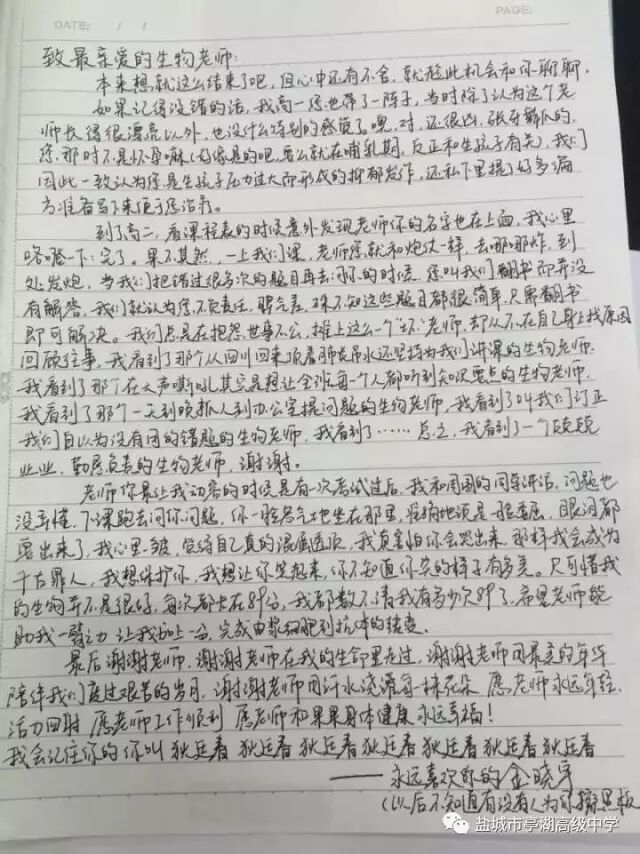 DATE: / /
PAGE:
致最亲爱的生物老师:
本来想就这么结束了吧,但心中还有不舍,就趁此机会和你聊聊.
如果记得没错的话,我高一您也带了一阵子,当时除了认为这个老
师长得很漂亮以外,也没什么特别的感觉了噢,对,还很凶,张牙舞爪的.
您,那时不是怀孕嘛(好像是的吧,要么就在哺乳期,反正和生孩子有关),我们
因此一致认为您是生孩子压力过大而形成的抑郁发作,还私下里提了好多偏
方准备写下来便于您治疗.
到了高二,看课程表的时候意外发现老师你的名字也在上面,我心里
咯噔一下:完了。果不其然,一上我们课,老师您就和炮仗一样,去哪哪炸,到
处发炮,当我们把错过很多次的题目再去问你的时候,您叫我们翻书而并没
有解答,我们就认为您不负责任,脾气差,殊不知这些题目都很简单,只需翻书
即可解决。我们总是在抱怨世事不公,摊上这么一个"坏"老师,却从不在自己身上找原因
回顾往事,我看到了那个从四川回来顶着肺炎吊水还坚持为我们讲课的生物老师.
我看到了那个在大声嘶吼其实是想让全班每一个人都听到知识要点的生物老师.
我看到了那个一天到晚抓人到办公室提问题的生物老师,我看到了叫我们订正
我们自以为没有用的错题的生物老师,我看到了……总之,我看到了一个兢兢
业业,勤恳负责的生物老师,谢谢。
老师你最让我动容的时候是有一次考试过后,我和周围的同学讲话,问题也
没弄懂,下课跑去问你问题,你一脸怒气地坐在那里,准确地说是一脸委屈,眼泪都
要出来了,我心里一皱,觉得自己真的混账透顶,我真害怕你会哭出来,那样我会成为
千古罪人,我想保护你,我想让你笑起来,你不知道你笑的样子有多美。只可惜我
的生物并不是很好,每次都卡在89分,我都数不清我有多少次89了,希望老师能
助我一臂之力 让我加上一分,完成由浆细胞到抗体的结束.
最后谢谢老师,谢谢老师在我的生命里走过,谢谢老师用最美的年华
陪伴我们度过艰苦的岁月,谢谢老师用汗水浇灌每一株花朵 愿老师永远年轻
活力四射 愿老师工作顺利 愿老师和果果身体健康 永远幸福!
我会记住你的 你叫 狄廷春 狄廷春 狄廷春 狄廷春 狄廷春 狄廷春
——永远喜欢你的 金晓宇
(以后不知道有没有人为你擦黑板
盐城市亭湖高级中学